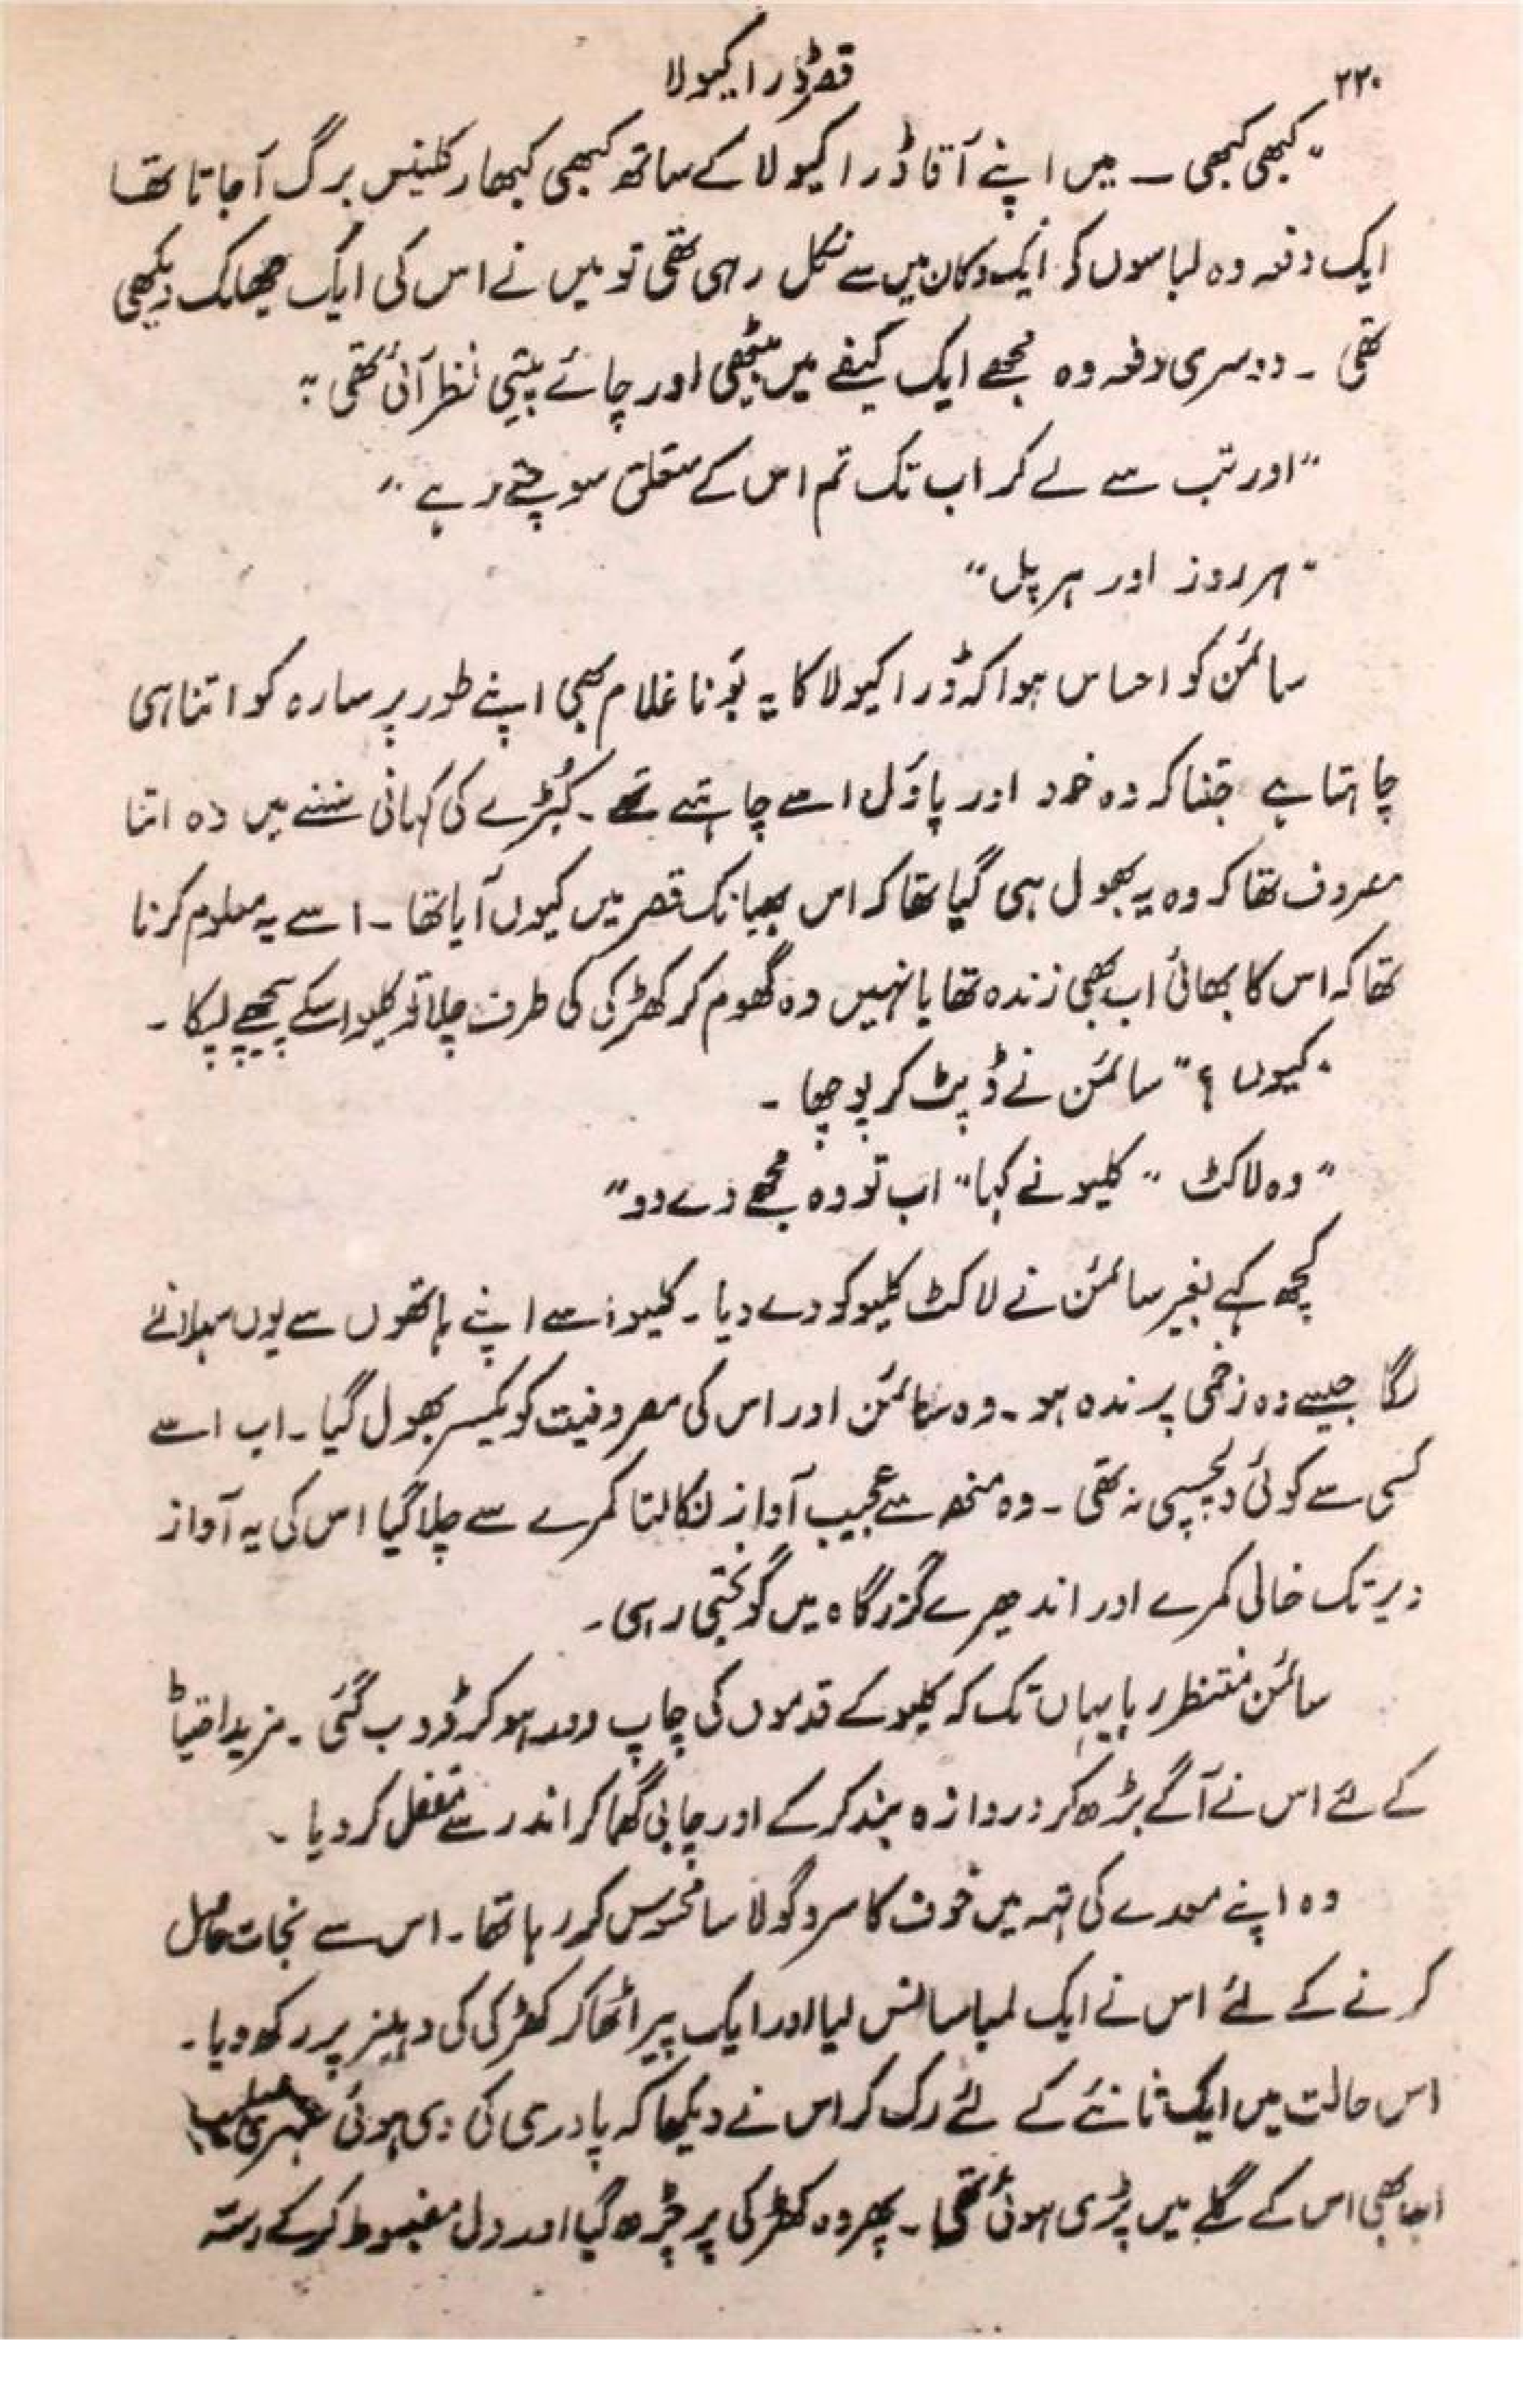 ۲۲۰
قصرِ ڈراکیولا
"کبھی کبھی ۔ میں اپنے آقا ڈراکیولا کے ساتھ کبھی کبھار کلینس برگ آجاتا تھا
ایک دفعہ وہ لباسوں کی ایک دکان میں سے نکل رہی تھی تو میں نے اس کی ایک جھلک دیکھی
تھی ۔ دوسری دفعہ وہ مجھے ایک کیفے میں بیٹھی اور چائے پیتی نظر آئی تھی ؛"
"اور تب سے لے کر اب تک تم اس کے متعلق سوچتے رہے "
"ہر روز اور ہر پل"
سائمن کو احساس ہوا کہ ڈراکیولا کا یہ بَونا غلام بھی اپنے طور پر سارہ کو اتنا ہی
چاہتا ہے جتنا کہ وہ خود اور پاؤل اسے چاہتے تھے ۔ کُبڑے کی کہانی سننے میں وہ اتنا
مصروف تھا کہ وہ یہ بھول ہی گیا تھا کہ اس بھیانک قصر میں کیوں آیا تھا ۔ اسے یہ معلوم کرنا
تھا کہ اس کا بھائی اب بھی زندہ تھا یا نہیں وہ گھوم کر کھڑکی کی طرف چلا تو کلیو اسکے پیچھے لپکا ۔
"کیوں ؟" سائمن نے ڈپٹ کر پوچھا ۔
"وہ لاکٹ " کلیو نے کہا" اب تو وہ مجھے دے دو"
کچھ کہے بغیر سائمن نے لاکٹ کلیو کو دے دیا ۔ کلیو اسے اپنے ہاتھوں سے یوں سہلانے
لگا جیسے وہ زخمی پرندہ ہو ۔ وہ سائمن اور اس کی مصروفیت کو یکسر بھول گیا ۔ اب اسے
کسی سے کوئی دلچسپی نہ تھی ۔ وہ منھ سے عجیب آواز نکالتا کمرے سے چلا گیا اس کی یہ آواز
دیر تک خالی کمرے اور اندھیرے گزرگاہ میں گونجتی رہی ۔
سائمن منتظر رہا یہاں تک کہ کلیو کے قدموں کی چاپ دور ہو کر ڈوب گئی ۔ مزید احتیاط
کے لئے اس نے آگے بڑھ کر دروازہ بند کر کے اور چابی گھما کر اندر سے مقفل کر دیا ۔
وہ اپنے معدے کی تہہ میں خوف کا سرد گولا سا محسوس کر رہا تھا ۔ اس سے نجات حاصل
کرنے کے لئے اس نے ایک لمبا سانس لیا اور ایک پیر اٹھا کر کھڑکی کی دہلیز پر رکھ دیا ۔
اس حالت میں ایک ثانئے کے لئے رک کر اس نے دیکھا کہ پادری کی دی ہوئی
ابھی اس کے گلے میں پڑی ہوئی تھی ۔ پھر وہ کھڑکی پر چڑھ گیا اور دل مضبوط کر کے رستہ